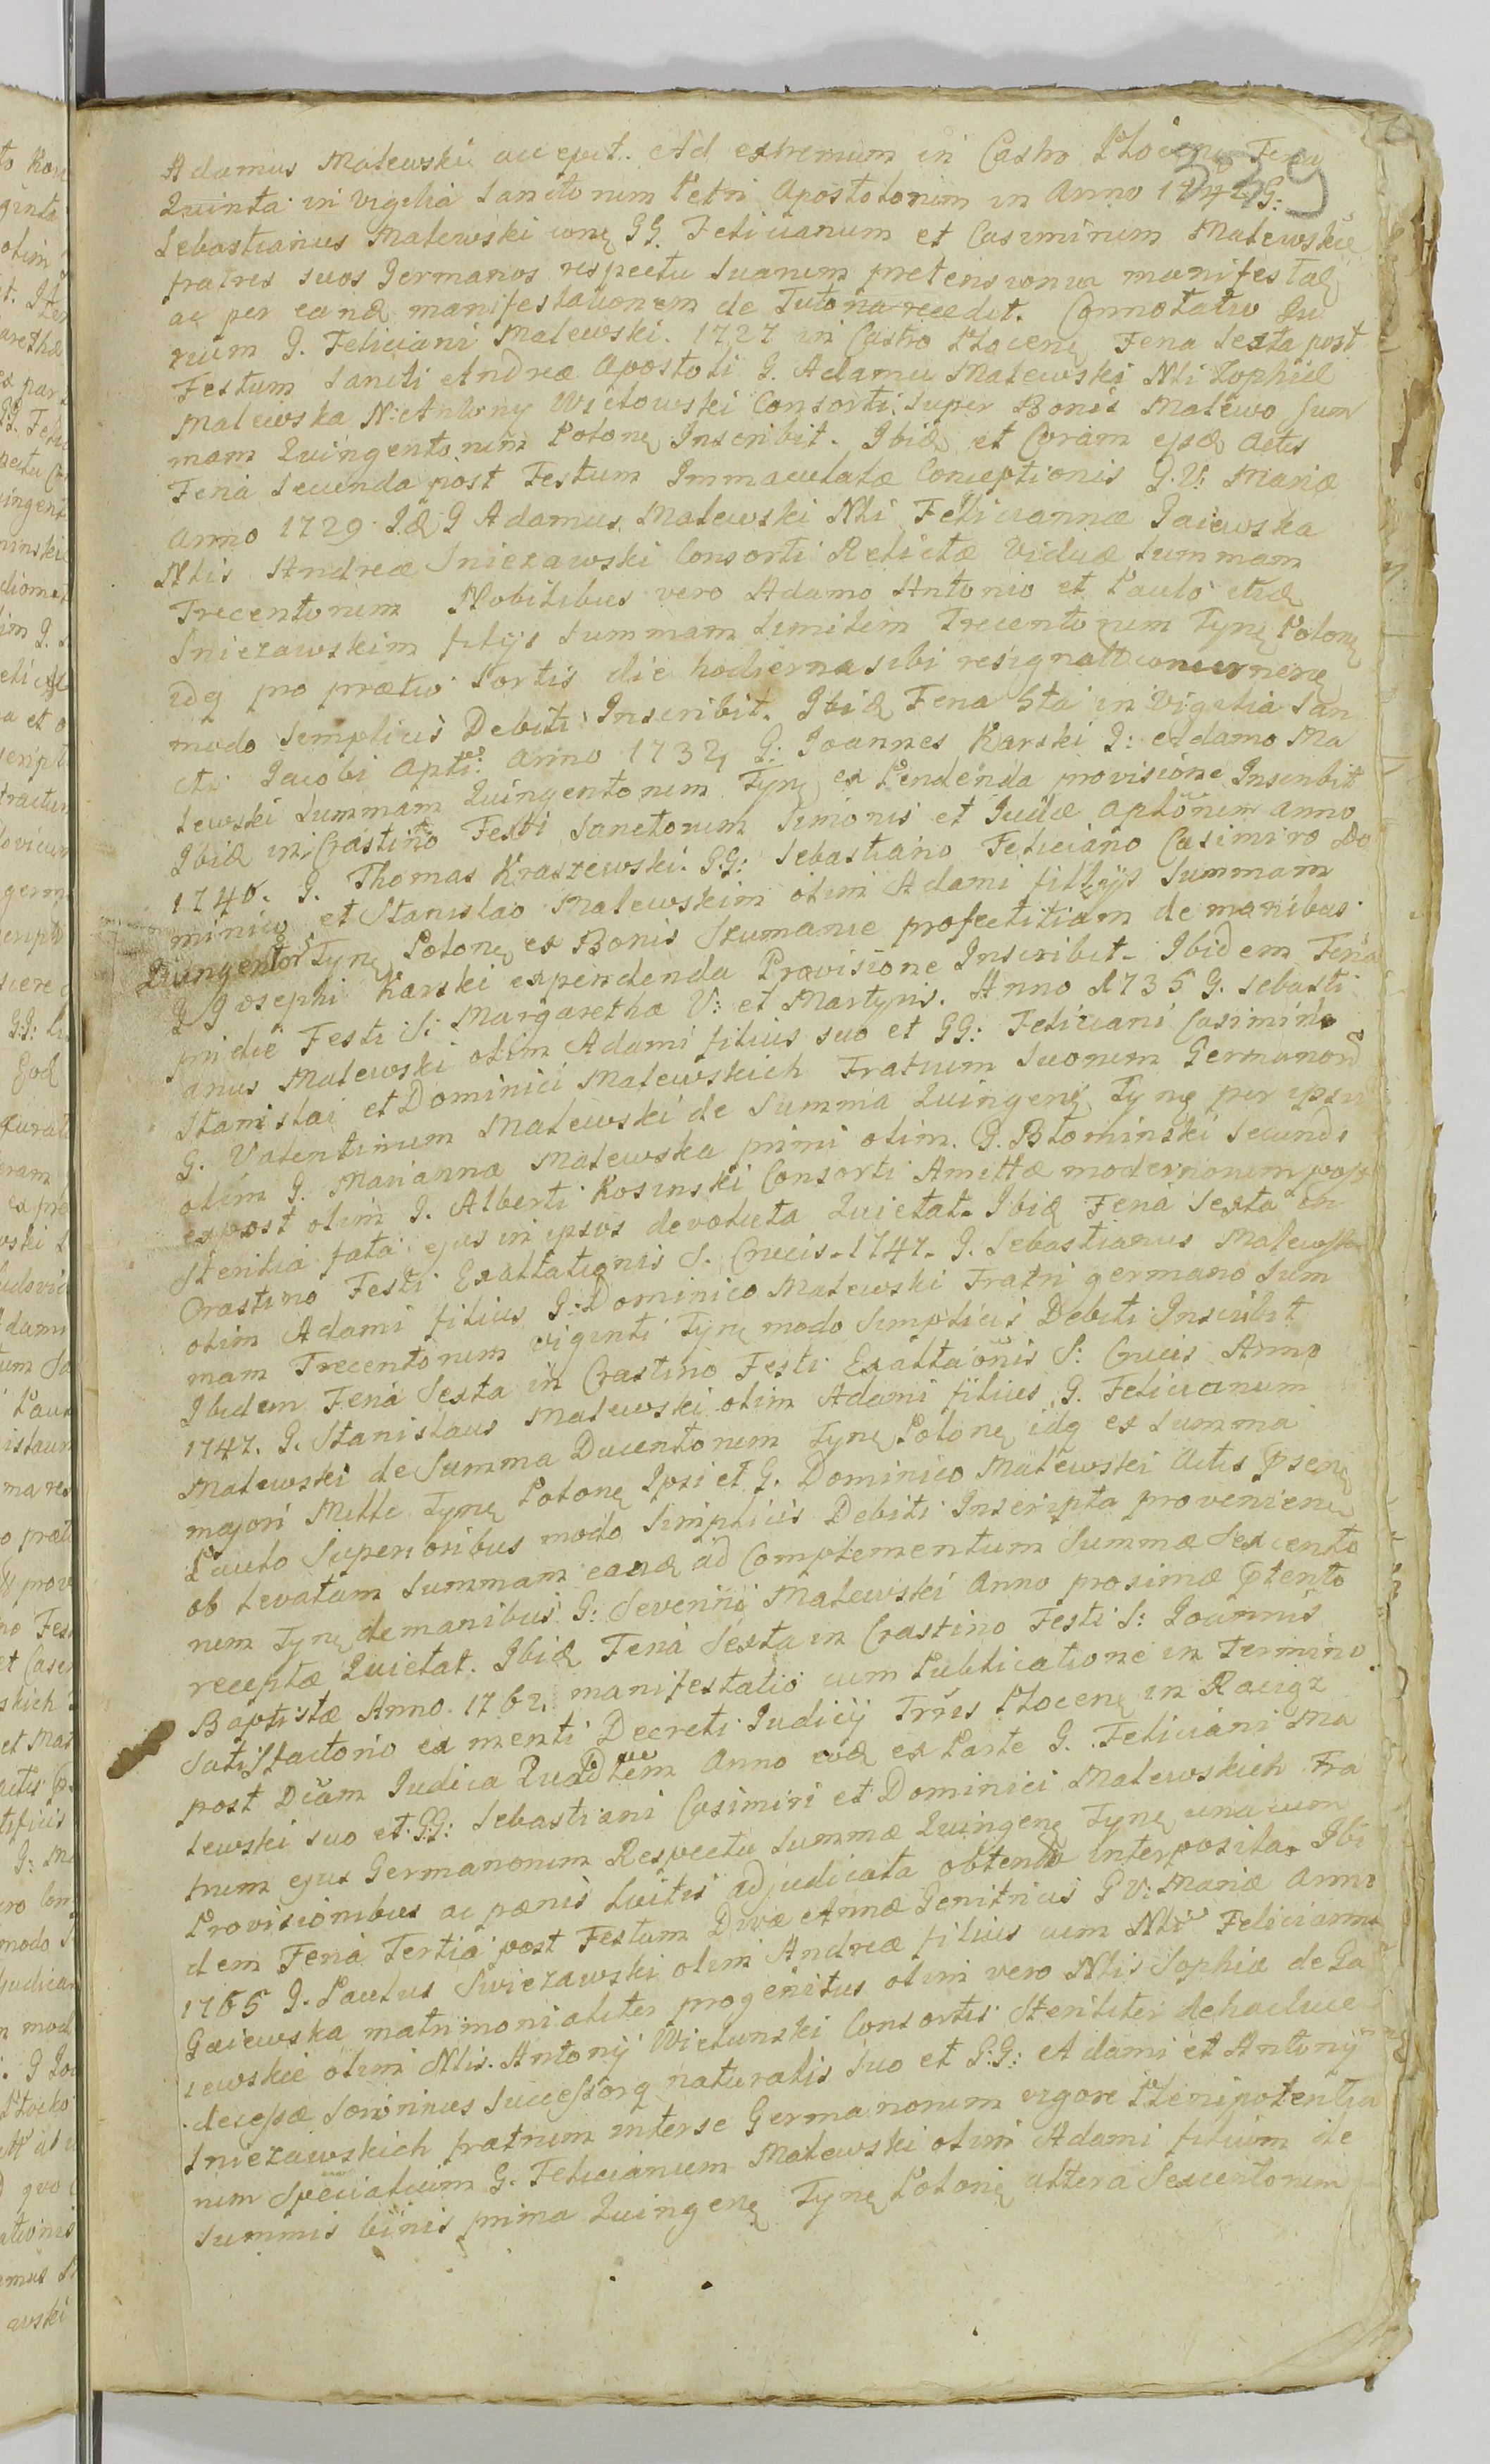 Adamus Malewski accepit. Ad extremum in Castro Plocenę Feria
339
Quinta in vigilia Sanctorum Petri Apostolorum in Anno 1742 G:
Sebastianus Malewski conę GG. Felicianum et Casimirum Malewskie
fratres suos Germanos respectu suarum pretensionum manifestaę
ac per eandę manifestationem de Tutoria recedit. Connotatio Ju
rium G. Feliciani Malewski. 1727 in Castro Plocenę Feria Sexta post
Festum Sancti Andreæ Apostoli G. Adamus Malewski Nli Zophiæ
Malewska N: Antony Wietowski Consorti Super Bonis Malewo Sum
mam Quingentorum Polonę Inscribit. Ibidę et Coram ejsdę Actis
Feria Secunda post Festum Immaculatæ Conceptionis G. V: Mariæ
Anno 1729 Idę G Adamus Malewski Nli Feliciannæ Gaiewska
Nlis Andreæ Sniezawski Consorti Relictæ Viduæ Summam
Trecentorum Nobilibus vero Adamo Antonio et Paulo etidę
Sniezawskim filijs Summam similem Trecentorum Fynę Polonę
idq pro prætio Sortis die hodierna sibi resignatæ concernenę
modo Simplicis Debiti Inscribit. Ibidę Feria 5ta in Vigilia San
cti Jacobi Apli Anno 1732 G. Joannes Karski G: Adamo Ma
lewski Summam Quingentorum Fynę ex Pendenda provisione Inscribit
Ibidę in Crastino Festi Sanctorum Simonis et Judæ Aplorum Anno
1740. G. Thomas Kraszewski. GG: Sebastiano Feliciano Casimiro Do
minico et Stanislao Malewskim olim Adami fillijs Summam
Quingentor Fynę Polonę ex Bonis Szumanie profectitiam de manibus
G Josephi Karski expendenda Provisione Inscribit. Ibidem Feria
pridie Festi S: Margarethæ V: et Martyris. Anno 1735 G. Sebasti
anus Malewski olim Adami filius suo et GG: Feliciani Casimiri
Stanislai et Dominici Malewskich Fratrum Suorum Germanord
G. Valentinum Malewski de Summa Quingenę Fynę per ipsū
olim G. Mariannæ Malewska primi olim. G. Blominski Secundi
expost olim G. Alberti Kosinski Consorti Amittæ modernorum post
sterilia fata ejus in ipsos devoluta Quietat. Ibidę Feria Sexta in
Crastino Festi Exaltationis S. Crucis. 1747. G. Sebastianus Malewski
olim Adami filius G: Dominico Malewski Fratri germano Sum
mam Trecentorum viginti Fynę modo Simplicis Debiti Inscribit
Ibidem Feria Sexta in Crastino Festi Exaltaōnis S: Crucis Anno
1747. G. Stanislaus Malewski olim Adami filius, G. Felicianum
Malewski de Summa Ducentorum Fynę Polonę idq ex Summa
majori Mille Fynę Polonę Ipsi et G. Dominico Malewski Actis p̄senę
Paulo Superioribus modo Simplicis Debiti Inscripta provenienę
ob levatam Summam eandę ad Complementum Summæ Sexcento
rum Fynę de manibus G: Severini Malewski Anno proximæ p̄tento
receptæ Quietat. Ibidę Feria Sexta in Crastino Festi S: Joannis
Baptistæ Anno. 1762. manifestatio cum Publicatione in Termino
Satisfactorio ex menti Decreti Judicij Trris Plocenę in Raciąz
post Dčam Judica Quadlem Anno eodę ex Parte G. Feliciani Ma
lewski suo et GG: Sebastiani Casimiri et Dominici Malewskich Fra
trum ejus Germanorum Respectu Summæ Quingenę Fynę una cum
Provisionibus ac pænis Luitis adjudicata obtento interposita. Ibi
dem Feria Tertia post Festum Divæ Annæ Genitricis G V: Mariæ Anno
1765 G. Paulus Swiezawski olim Andreæ filius cum Nli Felicianna
Gaiewska matrimonialiter progenitus olim vero Nlis Sophiæ de Ga
iewskie olim Nlis. Antonij Wielunski Consortis Steriliter de hac luce
decessæ Sororinus Successorq naturalis suo et G:G: Adami et Antonij
Sniezawskich fratrum interse Germanorum vigore Plenipotentia
rum Specialium G. Felicianum Malewski olim Adami filium de
Summis binis prima Quingenę Fynę Polonę altera Sexcentorum